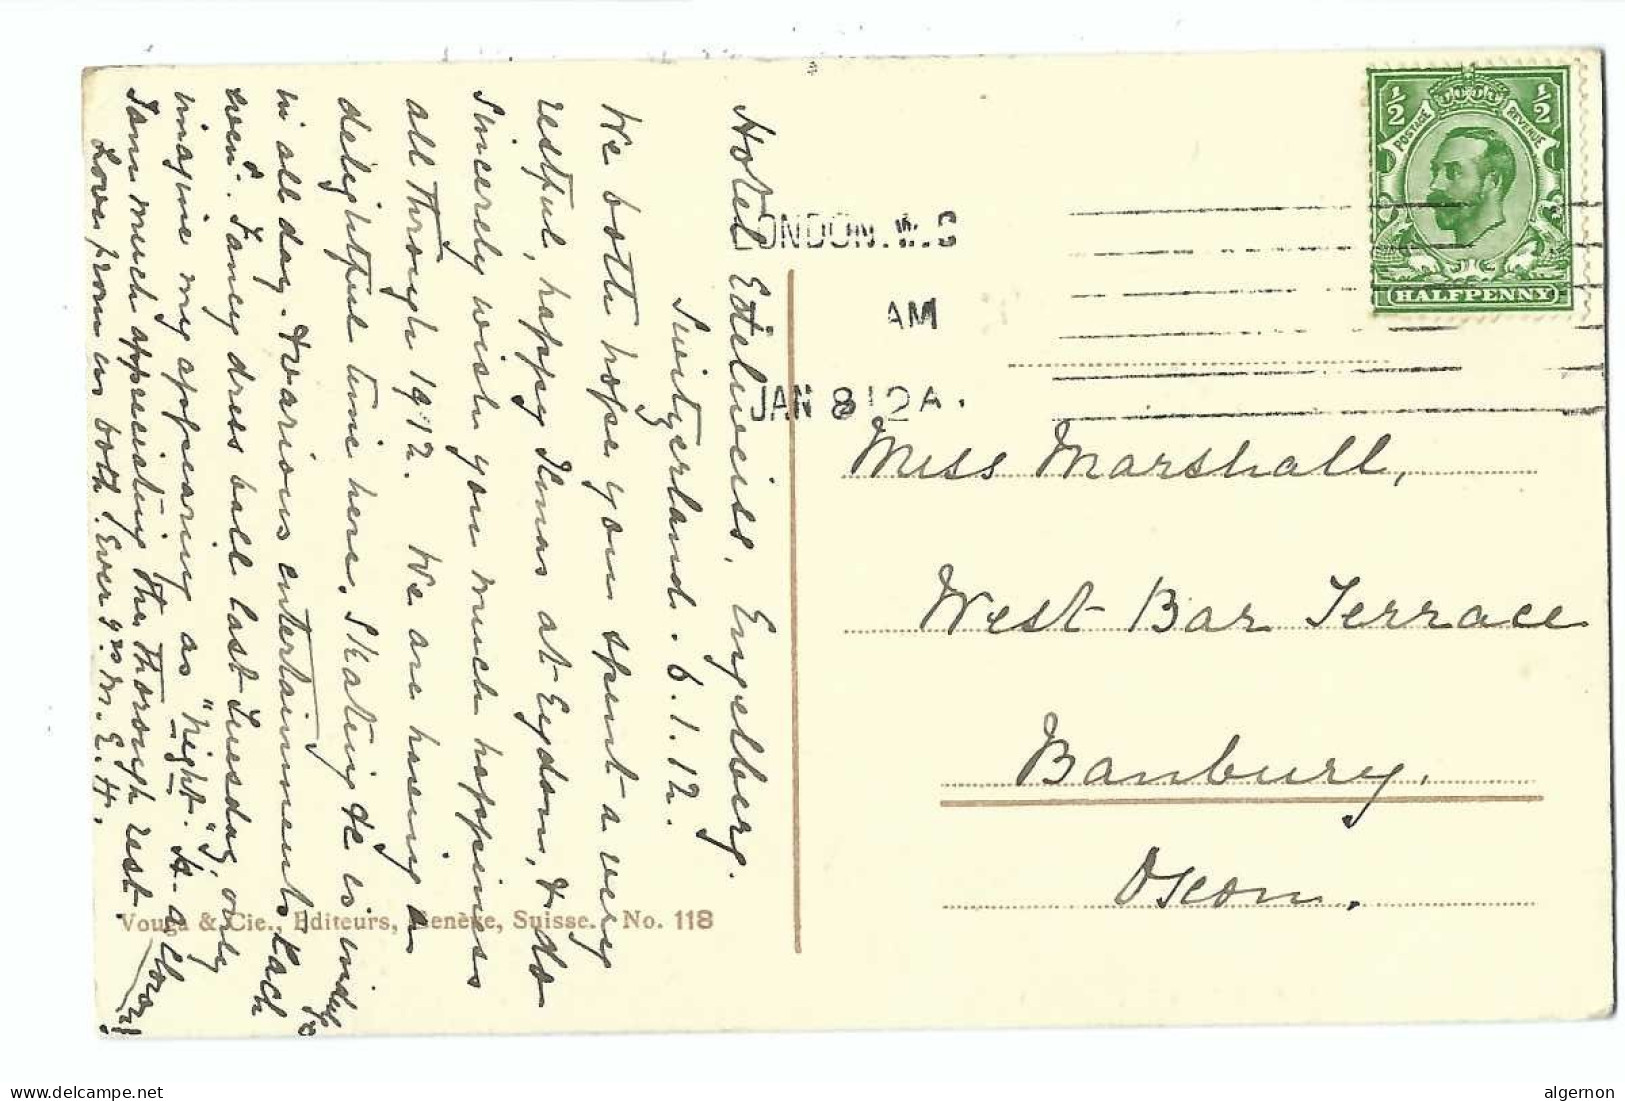 Hotel Edelweiss, Engelberg.
Switzerland. 6.1.12.
We both hope you spent a very
restful, happy Xmas at Eydon, & do
sincerely wish you much happiness
all through 1912. We are having a
delightful time here. Skating &c is indulged
in all day. & various entertainments each
even:. Fancy dress ball last Tuesday, only
imagine my appearing as "Night."
I am much appreciating the thorough rest.
Love from us both. Ever yrs M. E. H.
LONDON. W.C
AM
JAN 8 12 A.
½ ½
POSTAGE REVENUE
HALFPENNY
Miss Marshall,
West Bar Terrace
Banbury.
Oxon.
Vouga & Cie., Editeurs, Genève, Suisse. No. 118
delcampe.net
algernon